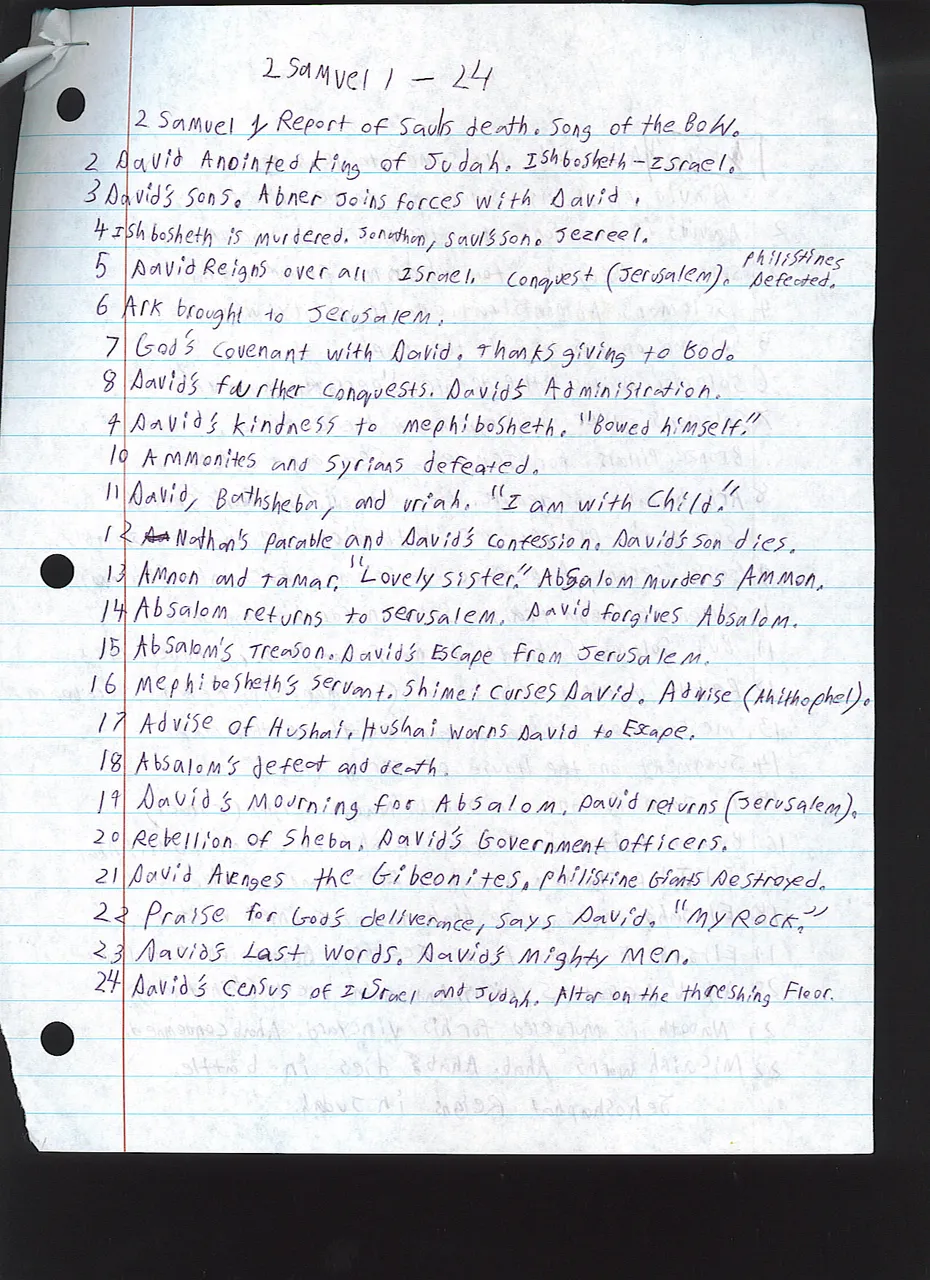 2 Samuel 1 - 24
2 Samuel 1 Report of Saul's death. Song of the Bow.
2 David Anointed King of Judah. Ishbosheth - Israel.
3 David's sons. Abner Joins forces with David.
4 Ishbosheth is murdered. Jonathan, Saul's son. Jezreel.
5 David Reigns over all Israel. Conquest (Jerusalem). Philistines Defeated.
6 Ark brought to Jerusalem.
7 God's covenant with David. Thanksgiving to God.
8 David's further conquests. David's Administration.
9 David's kindness to mephibosheth. "Bowed himself."
10 Ammonites and Syrians defeated.
11 David, Bathsheba, and Uriah. "I am with Child."
12 Nathan's parable and David's confession. David's son dies.
13 Amnon and Tamar, "Lovely sister." Absalom murders Ammon.
14 Absalom returns to Jerusalem. David forgives Absalom.
15 Absalom's Treason. David's Escape from Jerusalem.
16 Mephibosheth's servant. Shimei curses David. Advise (Ahithophel).
17 Advise of Hushai. Hushai warns David to Escape.
18 Absalom's defeat and death.
19 David's Mourning for Absalom. David returns (Jerusalem).
20 Rebellion of Sheba. David's Government officers.
21 David Avenges the Gibeonites. Philistine Giants Destroyed.
22 Praise for God's deliverance, says David. "My Rock."
23 David's Last words. David's mighty men.
24 David's census of Israel and Judah. Altar on the threshing Floor.